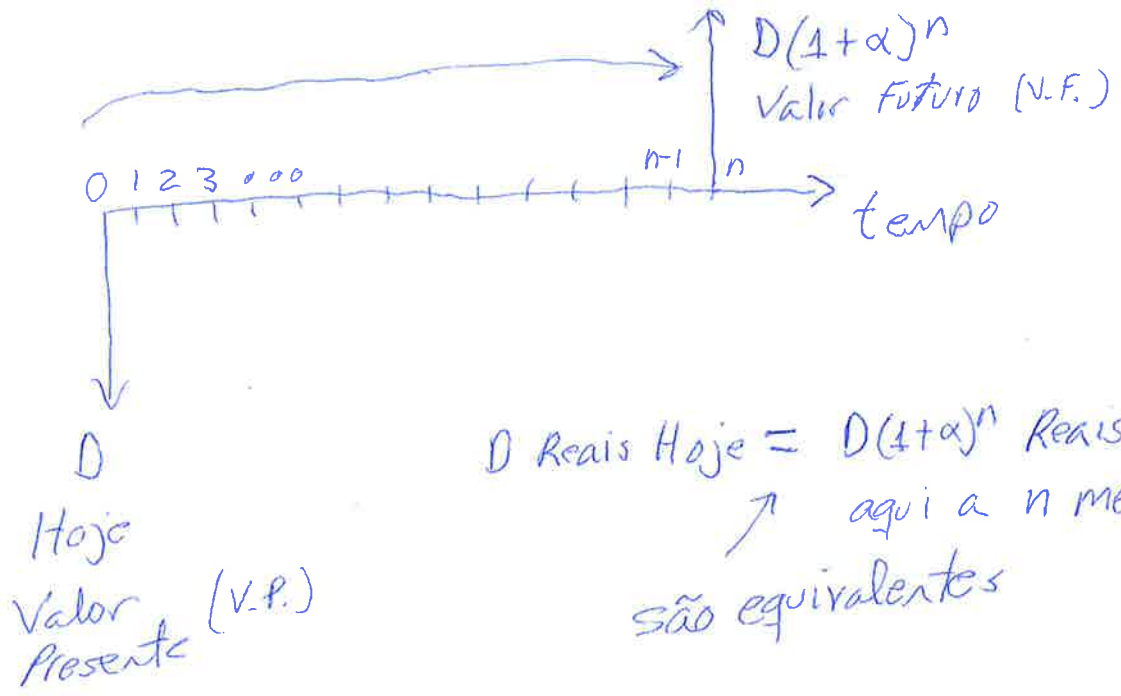 D(1+α)^n
Valor Futuro (V.F.)
0 1 2 3 ... n-1 n
tempo
D
Hoje
Valor (V.P.)
Presente
D Reais Hoje = D(1+α)^n Reais
aqui a n
são equivalentes